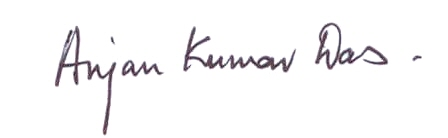 Anjan Kumar Das .